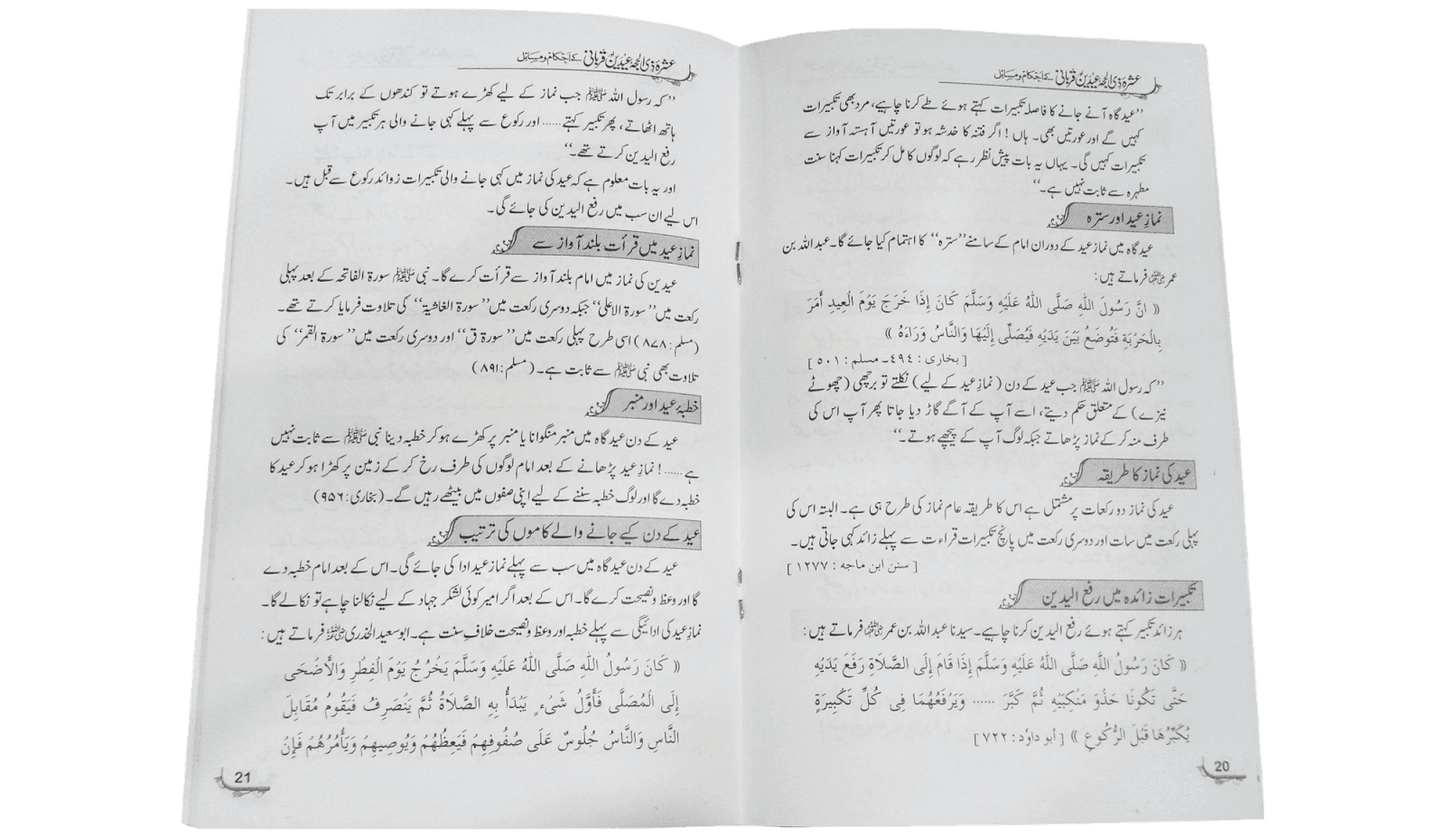 عشرہ ذی الحجہ عیدین قربانی کے احکام و مسائل
’’عید گاہ آنے جانے کا فاصلہ تکبیرات کہتے ہوئے طے کرنا چاہیے، مرد بھی تکبیرات
کہیں گے اور عورتیں بھی۔ ہاں ! اگر فتنہ کا خدشہ ہو تو عورتیں آہستہ آواز سے
تکبیرات کہیں گی۔ یہاں یہ بات پیش نظر رہے کہ لوگوں کا مل کر تکبیرات کہنا سنت
مطہرہ سے ثابت نہیں ہے۔‘‘
نماز عید اور سترہ
عید گاہ میں نماز عید کے دوران امام کے سامنے ’’سترہ‘‘ کا اہتمام کیا جائے گا۔ عبداللہ بن
عمر رضی اللہ عنہ فرماتے ہیں :
(( انَّ رَسُولَ اللهِ صَلَّى اللهُ عَلَيْهِ وَسَلَّمَ كَانَ إِذَا خَرَجَ يَوْمَ الْعِيدِ أَمَرَ
بِالْحَرْبَةِ فَتُوضَعُ بَيْنَ يَدَيْهِ فَيُصَلِّى إِلَيْهَا وَالنَّاسُ وَرَاءَهُ ))
[ بخاری : ٤٩٤ـ مسلم : ٥٠١ ]
’’کہ رسول اللہ ﷺ جب عید کے دن ( نماز عید کے لیے ) نکلتے تو برچھی (چھوٹے
نیزے ) کے متعلق حکم دیتے، اسے آپ کے آگے گاڑ دیا جاتا پھر آپ اس کی
طرف منہ کر کے نماز پڑھاتے جبکہ لوگ آپ کے پیچھے ہوتے۔‘‘
عید کی نماز کا طریقہ
عید کی نماز دو رکعات پر مشتمل ہے اس کا طریقہ عام نماز کی طرح ہی ہے۔ البتہ اس کی
پہلی رکعت میں سات اور دوسری رکعت میں پانچ تکبیرات قراءت سے پہلے زائد کہی جاتی ہیں۔
[ سنن ابن ماجه : ١٢٧٧ ]
تکبیرات زائدہ میں رفع الیدین
ہر زائد تکبیر کہتے ہوئے رفع الیدین کرنا چاہیے۔ سیدنا عبداللہ بن عمر رضی اللہ عنہ فرماتے ہیں :
(( كَانَ رَسُولُ اللَّهِ صَلَّى اللهُ عَلَيْهِ وَسَلَّمَ إِذَا قَامَ إِلَى الصَّلَاةِ رَفَعَ يَدَيْهِ
حَتَّى تَكُونَا حَذْوَ مَنْكِبَيْهِ ثُمَّ كَبَّرَ ...... وَيَرْفَعُهُمَا فِى كُلِّ تَكْبِيرَةٍ
يُكَبِّرُهَا قَبْلَ الرُّكُوعِ )) [ أبو داوٗد : ٧٢٢ ]
20
عشرہ ذی الحجہ عیدین قربانی کے احکام و مسائل
’’کہ رسول اللہ ﷺ جب نماز کے لیے کھڑے ہوتے تو کندھوں کے برابر تک
ہاتھ اٹھاتے، پھر تکبیر کہتے...... اور رکوع سے پہلے کہی جانے والی ہر تکبیر میں آپ
رفع الیدین کرتے تھے۔‘‘
اور یہ بات معلوم ہے کہ عید کی نماز میں کہی جانے والی تکبیرات زوائد رکوع سے قبل ہیں۔
اس لیے ان سب میں رفع الیدین کی جائے گی۔
نماز عید میں قرأت بلند آواز سے
عیدین کی نماز میں امام بلند آواز سے قرأت کرے گا۔ نبی ﷺ سورۃ الفاتحہ کے بعد پہلی
رکعت میں ’’سورۃ الاعلیٰ‘‘ جبکہ دوسری رکعت میں ’’سورۃ الغاشیۃ‘‘ کی تلاوت فرمایا کرتے تھے۔
(مسلم : ۸۷۸ ) اسی طرح پہلی رکعت میں ’’سورۃ ق‘‘ اور دوسری رکعت میں ’’سورۃ القمر‘‘ کی
تلاوت بھی نبی ﷺ سے ثابت ہے۔ (مسلم : ۸۹۱ )
خطبۂ عید اور منبر
عید کے دن عید گاہ میں منبر منگوانا یا منبر پر کھڑے ہو کر خطبہ دینا نبی ﷺ سے ثابت نہیں
ہے ...... ! نماز عید پڑھانے کے بعد امام لوگوں کی طرف رخ کر کے زمین پر کھڑا ہو کر عید کا
خطبہ دے گا اور لوگ خطبہ سننے کے لیے اپنی صفوں میں بیٹھے رہیں گے۔ (بخاری : ۹۵۶)
عید کے دن کیے جانے والے کاموں کی ترتیب
عید کے دن عید گاہ میں سب سے پہلے نماز عید ادا کی جائے گی۔ اس کے بعد امام خطبہ دے
گا اور وعظ و نصیحت کرے گا۔ اس کے بعد اگر امیر کوئی لشکر جہاد کے لیے نکالنا چاہے تو نکالے گا۔
نماز عید کی ادائیگی سے پہلے خطبہ اور وعظ و نصیحت خلاف سنت ہے۔ ابو سعید الخدری رضی اللہ عنہ فرماتے ہیں :
(( كَانَ رَسُولُ اللهِ صَلَّى اللهُ عَلَيْهِ وَسَلَّمَ يَخْرُجُ يَوْمَ الْفِطْرِ وَالْأَضْحَى
إِلَى الْمُصَلَّى فَأَوَّلُ شَىْءٍ يَبْدَأُ بِهِ الصَّلَاةُ ثُمَّ يَنْصَرِفُ فَيَقُومُ مُقَابِلَ
النَّاسِ وَالنَّاسُ جُلُوسٌ عَلَى صُفُوفِهِمْ فَيَعِظُهُمْ وَيُوصِيهِمْ وَيَأْمُرُهُمْ فَإِنْ
21